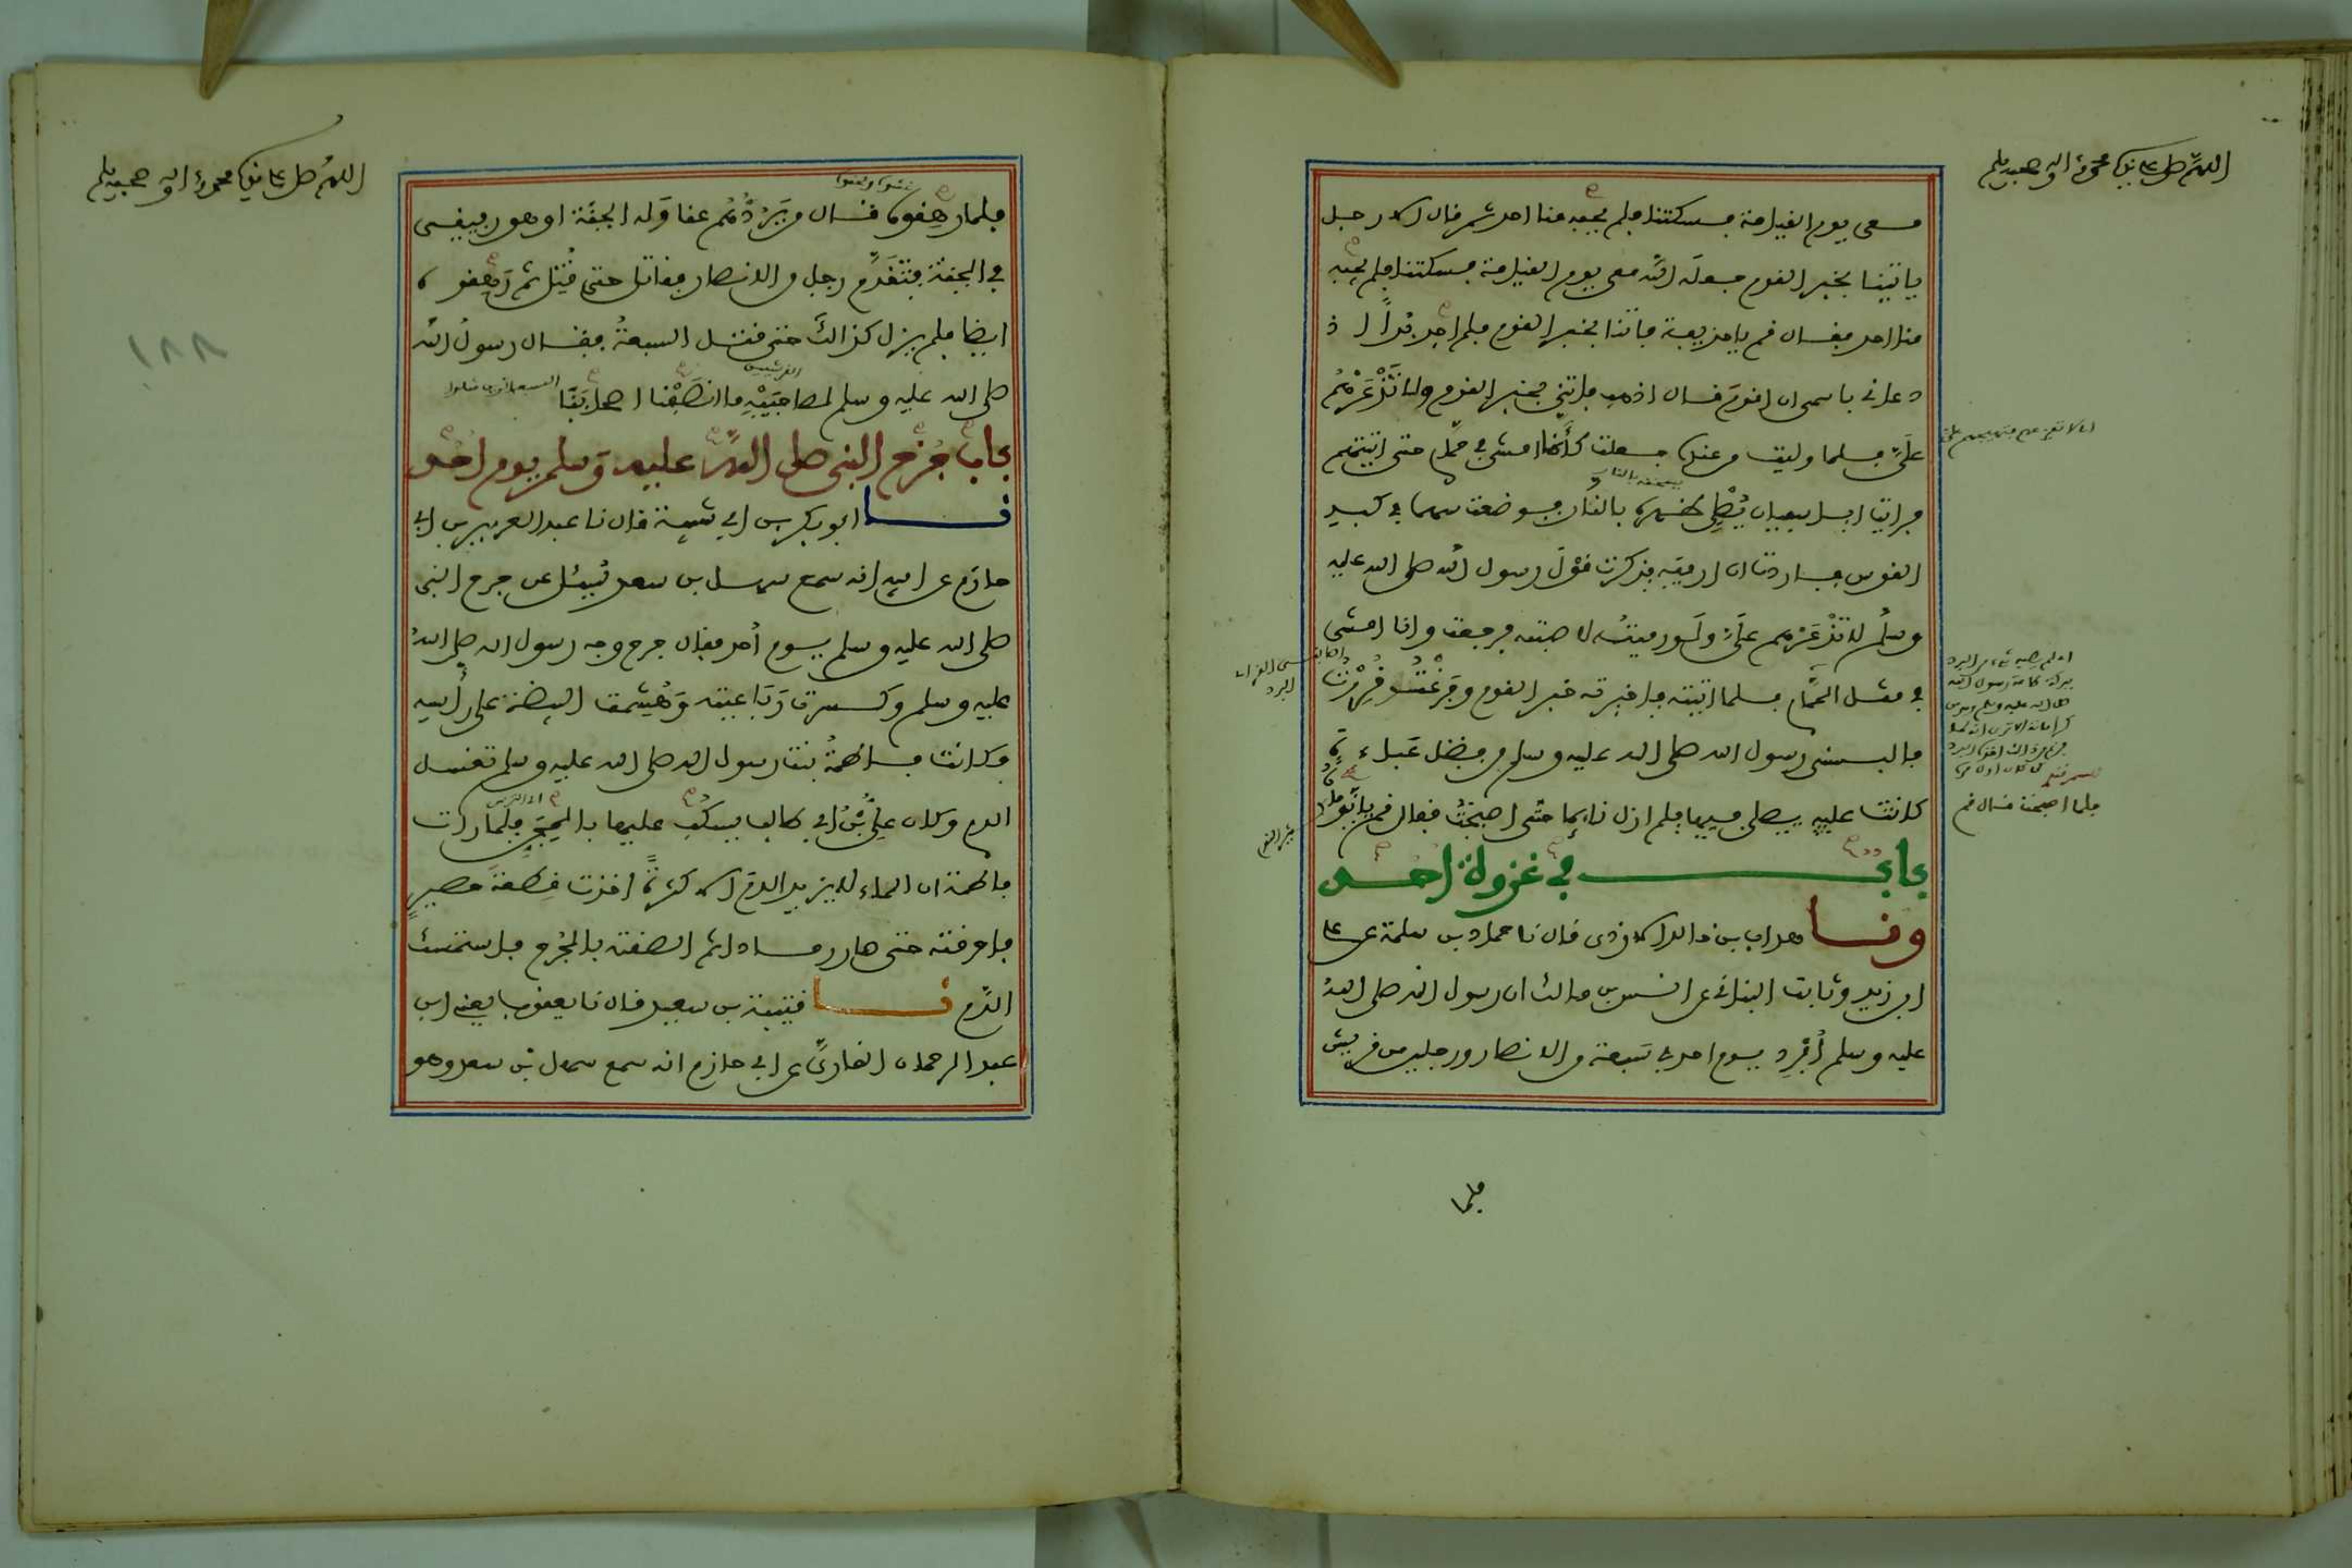 اللهم صل على نبينا محمد واله وصحبه وسلم
معى يوم القيامة فسكتنا فلم يجبه منا احد ثم قال الا رجل
ياتينا بخبر القوم جعله الله معى يوم القيامة فسكتنا فلم يجبه
منا احد فقال قم ياحذيفة فاتنا بخبر القوم فلم اجد بدا اذ
دعانى باسمى ان اقوم قال اذهب فاتنى بخبر القوم ولا تذعرهم
على فلما وليت من عنده جعلت كانما امشى فى حمام حتى اتيتهم
فرايت ابا سفيان يصلى ظهره بالنار فوضعت سهما فى كبد
القوس فاردت ان ارميه فذكرت قول رسول الله صلى الله عليه
وسلم لا تذعرهم على ولو رميته لاصبته فرجعت وانا امشى
فى مثل الحمام فلما اتيته فاخبرته خبر القوم وفرغت قررت
فالبسنى رسول الله صلى الله عليه وسلم من فضل عباءة
كانت عليه يصلى فيها فلم ازل نايما حتى اصبحت فقال قم يانومان
فلما اصبحت قال قم
باب فى غزوة احد
ونا هداب بن خالد الازدى قال نا حماد بن سلمة عن على
ابن زيد وثابت البنانى عن انس بن مالك ان رسول الله صلى الله
عليه وسلم افرد يوم احد فى سبعة من الانصار ورجلين من قريش
فلما
اللهم صل على نبينا محمد واله وصحبه وسلم
فلما رهقوه قال من يردهم عنا وله الجنة او هو رفيقى
فى الجنة فتقدم رجل من الانصار فقاتل حتى قتل ثم رهقوه
١٨٨
ايضا فلم يزل كذالك حتى قتل السبعة فقال رسول الله
صلى الله عليه وسلم لصاحبيه ما انصفنا اصحابنا
القرشيين
باب جرح النبى صلى الله عليه وسلم يوم احد
نا ابو بكر بن ابى شيبة قال نا عبد العزيز بن ابى
حازم عن ابيه انه سمع سهل بن سعد يسئل عن جرح النبى
صلى الله عليه وسلم يوم احد فقال جرح وجه رسول الله صلى الله
عليه وسلم وكسرت رباعيته وهشمت البيضة على راسه
فكانت فاطمة بنت رسول الله صلى الله عليه وسلم تغسل
الدم وكان على بن ابى طالب يسكب عليها بالمجن فلما رات
فاطمة ان الماء لا يزيد الدم الا كثرة اخذت قطعة حصير
فاحرقته حتى صار رمادا ثم الصقته بالجرح فاستمسك
الدم نا قتيبة بن سعيد قال نا يعقوب يعنى ابن
عبد الرحمان القارى عن ابى حازم انه سمع سهل بن سعد وهو